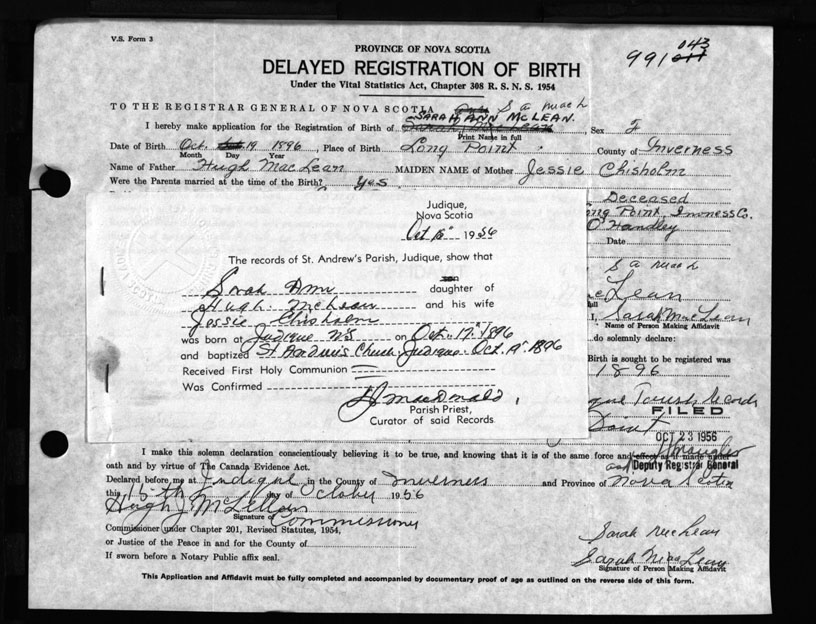 V.S. Form 3
PROVINCE OF NOVA SCOTIA
991043
DELAYED REGISTRATION OF BIRTH
Under the Vital Statistics Act, Chapter 308 R. S. N. S. 1954
TO THE REGISTRAR GENERAL OF NOVA SCOTIA S a mach
SARAH ANN MCLEAN.
I hereby make application for the Registration of Birth of Sarah MacLean, Sex F
Print Name in full
Date of Birth Oct. 19 1896, Place of Birth Long Point. County of Inverness
Month Day Year
Name of Father Hugh MacLean MAIDEN NAME of Mother Jessie Chisholm
Were the Parents married at the time of the Birth? Yes
Deceased
ong Point, Invness Co.
O'Handley
Date
S a mach
cLean
I, Sarah MacLean
Name of Person Making Affidavit
do solemnly declare:
Birth is sought to be registered was
1896
Records
FILED
Point
OCT 23 1956
Deputy Registrar General
Judique,
Nova Scotia
Oct 15" 1956
The records of St. Andrew's Parish, Judique, show that
Sarah Ann daughter of
Hugh McLean and his wife
Jessie Chisholm
was born at Judique N.S on Oct. 17" 1896
and baptized St Andrew's Church, Judique, Oct. 19" 1896
Received First Holy Communion
Was Confirmed
MacDonald,
Parish Priest,
Curator of said Records
I make this solemn declaration conscientiously believing it to be true, and knowing that it is of the same force and effect as if made under
oath and by virtue of The Canada Evidence Act.
Declared before me at Judique in the County of Inverness and Province of Nova Scotia
this 16th day of October 1956
Hugh J McLellan
Signature of Commissioner
Commissioner (under Chapter 201, Revised Statutes, 1954,
or Justice of the Peace in and for the County of
If sworn before a Notary Public affix seal.
Sarah McLean
Sarah MacLean
Signature of Person Making Affidavit
This Application and Affidavit must be fully completed and accompanied by documentary proof of age as outlined on the reverse side of this form.